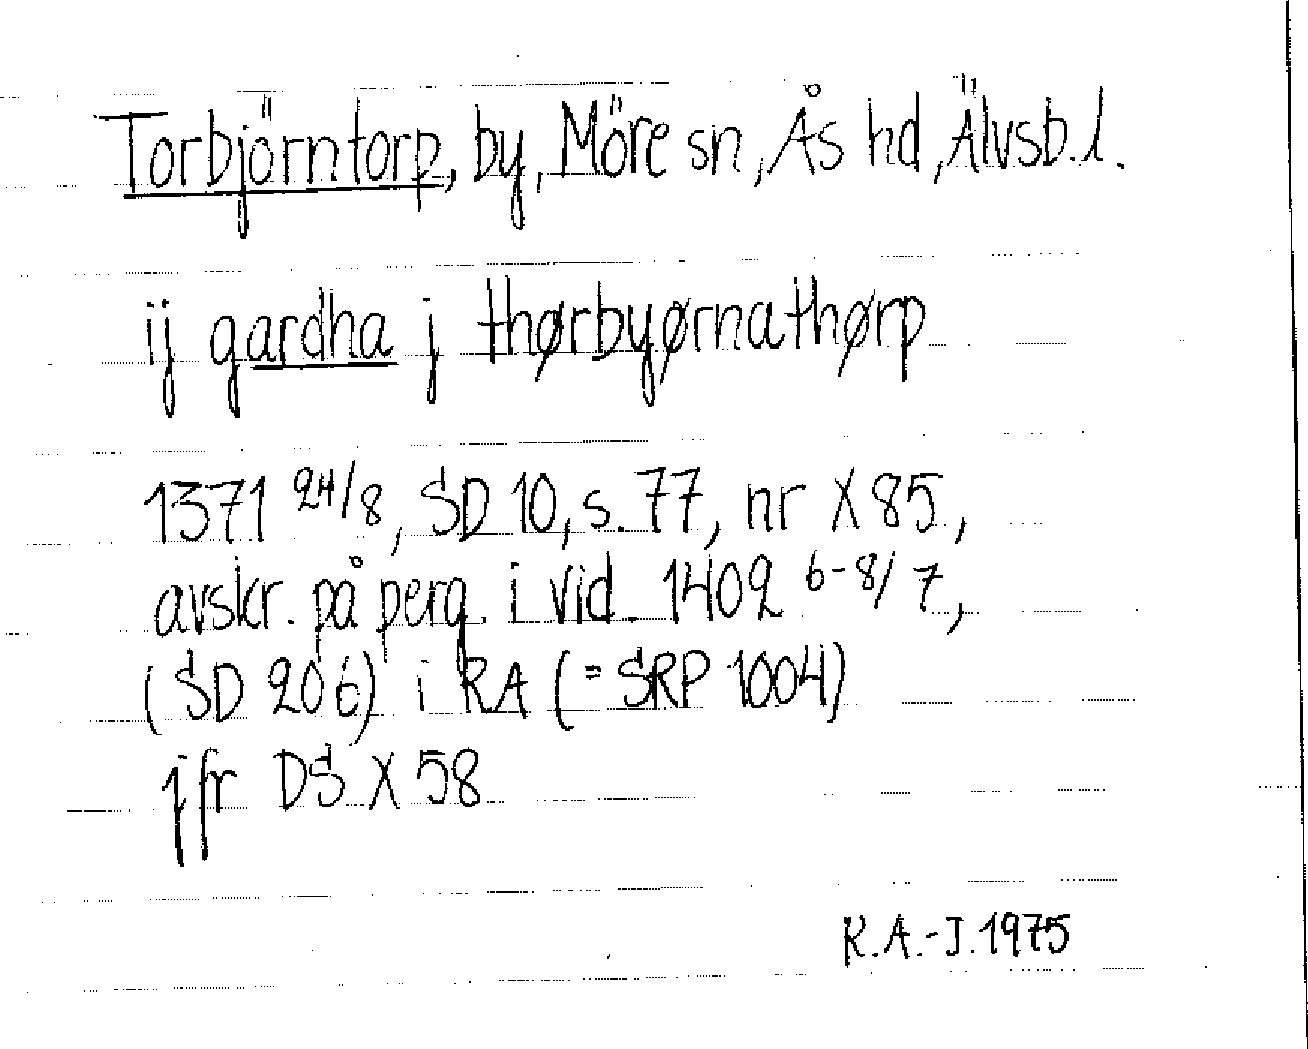 Torbjörntorp, by, Möre sn, Ås hd, Älvsb. l.
ij gardha j thørbyørnathørp
1371 24/8, SD 10, s. 77, nr X 85,
avskr. på perg. i vid. 1402 6-8/7,
(SD 206) i RA (= SRP 1004)
jfr DS X 58
K.A.-J. 1975